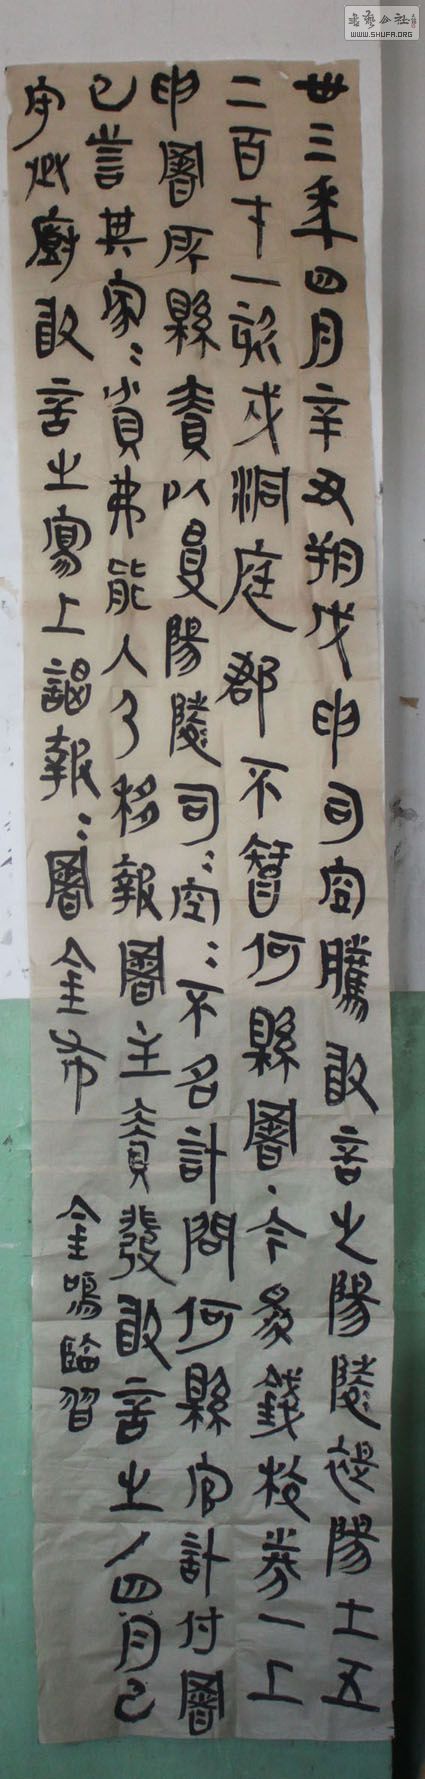 卅三年四月辛丑朔戊申司空騰敢言之陽陵褆陽士五
二百六十一不戍洞庭郡不智何縣署·今為錢校券一上
申署所縣責以受陽陵司=空=不名計問何縣官計付署
已訾其家=貧弗能入乃移報署主責發敢言之/四月己
守丞廚敢言之寫上謁報=署金布
金鳴臨習
書法公社
WWW.SHUFA.ORG